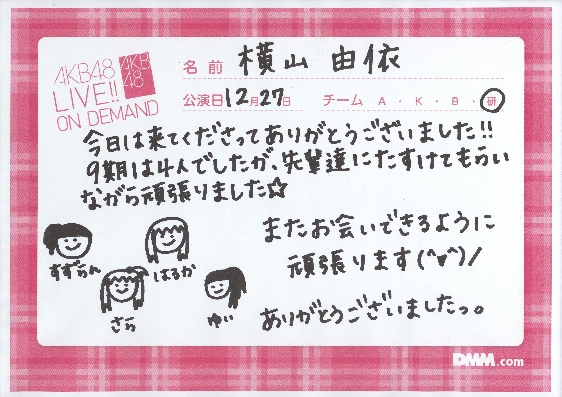 AKB48
LIVE!!
ON DEMAND
AKB
48
名前 横山 由依
公演日 12月27日 チーム A・K・B・研
今日は来てくださってありがとうございました!!
9期は4人でしたが、先輩達にたすけてもらい
ながら頑張りました☆
またお会いできるように
頑張ります(^v^)/
ありがとうございましたっ。
すずらん
はるか
さら
ゆい
DMM.com